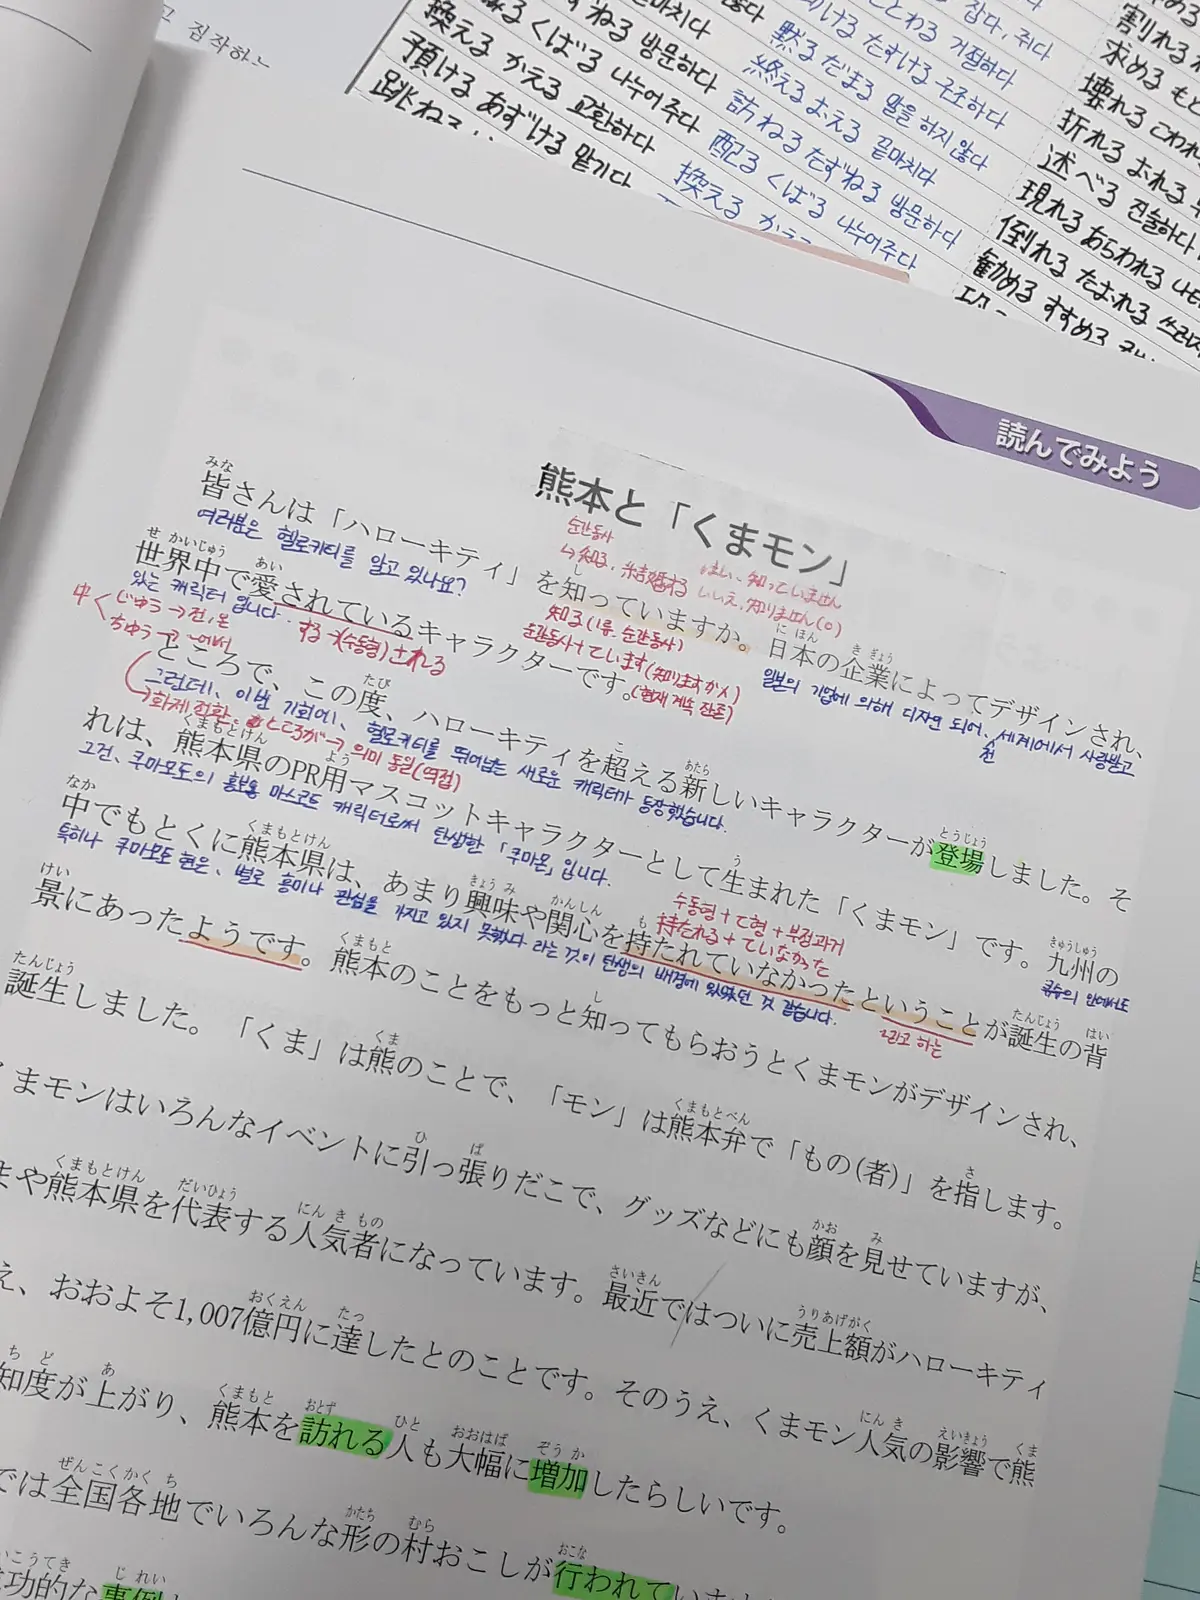 짐작하
끝마치다
くばる 나누어주다
換える かえる 교환하다
預ける あずける 맡기다
ねる 방문하다
たすける 구조하다
ことわる 거절하다
잡다, 쥐다
黙る だまる 말을 하지 않다
終える おえる 끝마치다
訪ねる たずねる 방문하다
配る くばる 나누어주다
換える かえる
割れる
求める
壊れる こわれ
折れる おれる
述べる 진술하다
現れる あらわれる
倒れる たおれる 쓰러지
勧める すすめる
読んでみよう
熊本と「くまモン」
みな
皆さんは「ハローキティ」を知っていますか。日本の企業によってデザインされ、
여러분은 헬로키티를 알고 있나요?
순간동사
↳ 知る, 結婚する
はい、知っていません
いいえ, 知りません(O)
知る(1류, 순간동사)
순간동사+ています(知りますか X)
(현재 계속 잔존)
일본의 기업에 의해 디자인 되어, 세계에서 사랑받고
전
せ かいじゅう あい し に ほん き ぎょう
世界中で愛されているキャラクターです。
있는 캐릭터 입니다.
中 < じゅう → 전, 온
ちゅう
する → (수동형) される
たび こ あたら とうじょう
ところで、この度、ハローキティを超える新しいキャラクターが登場しました。そ
그런데, 이번 기회에, 헬로키티를 뛰어넘는 새로운 캐릭터가 등장했습니다.
↳ 화제 전환. ところが → 의미 동일(역접)
くまもとけん よう う
れは、熊本県のPR用マスコットキャラクターとして生まれた「くまモン」です。九州の
그건, 쿠마모토의 홍보용 마스코트 캐릭터로써 탄생한 「쿠마몬」입니다.
きゅうしゅう
큐슈의 안에서도
なか くまもとけん きょう み かんしん も たんじょう はい
中でもとくに熊本県は、あまり興味や関心を持たれていなかったということが誕生の背
특히나 쿠마모토 현은, 별로 흥미나 관심을 가지고 있지 못했다 라는 것이 탄생의 배경에 있었던 것 같습니다.
수동형 + て형 + 부정과거
持たれる + ていなかった
라고 하는
けい くまもと し
景にあったようです。熊本のことをもっと知ってもらおうとくまモンがデザインされ、
たんじょう くま くまもとべん さ
誕生しました。「くま」は熊のことで、「モン」は熊本弁で「もの(者)」を指します。
ひ ぱ かお み
まモンはいろんなイベントに引っ張りだこで、グッズなどにも顔を見せていますが、
くまもとけん だいひょう にん き もの さいきん うりあげがく
や熊本県を代表する人気者になっています。最近ではついに売上額がハローキティ
おくえん たっ
え、おおよそ1,007億円に達したとのことです。そのうえ、くまモン人気の影響で熊
にん き えいきょう くま
ち ど あ くまもと おとず ひと おおはば ぞう か
知度が上がり、熊本を訪れる人も大幅に増加したらしいです。
ぜんこくかく ち かたち むら おこな
では全国各地でいろんな形の村おこしが行われていま
こうてき じ れい
功的な事例